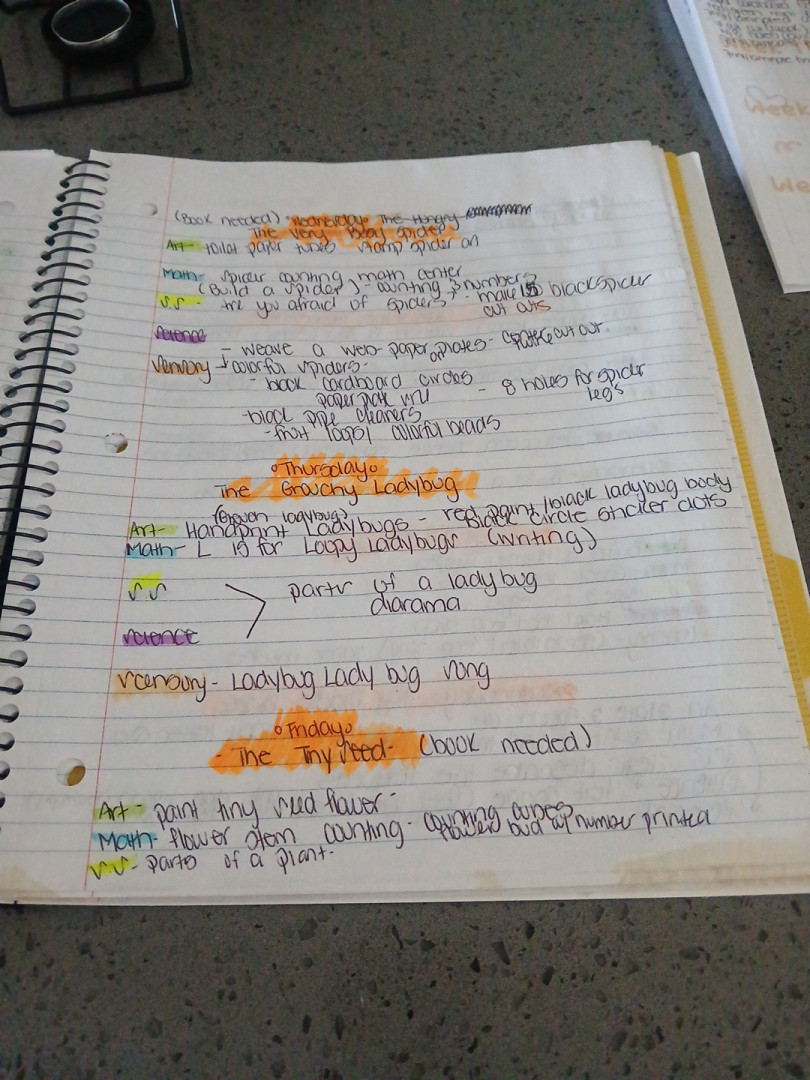 (Book needed) Wednesday The Hungry
The Very Busy Spider
Art- toilet paper tubes stamp spider on
Math- Spider counting math center
(Build a spider) - counting & numbers
SS - Are you afraid of spiders? - make 15 black spider
cut outs
Science - weave a web- paper plates-
cut out
Sensory → colorful spiders-
- book cardboard circles - 8 holes for spider
paper plate legs
-black pipe cleaners
-fruit loops/ colorful beads
Thursday
The Grouchy Ladybug
(Grouchy ladybug)
Art- Handprint Ladybugs - red paint/black ladybug body
Black circle sticker dots
Math- L is for Loopy Ladybugs (writing)
SS
parts of a lady bug
diarama
science
scensory- Ladybug Lady bug song
Friday
- The Tiny Seed- (book needed)
Art - paint tiny seed flower-
Math- flower stem counting- counting cubes
flowers bud w/ number printed
SS- parts of a plant-
Week
or
We